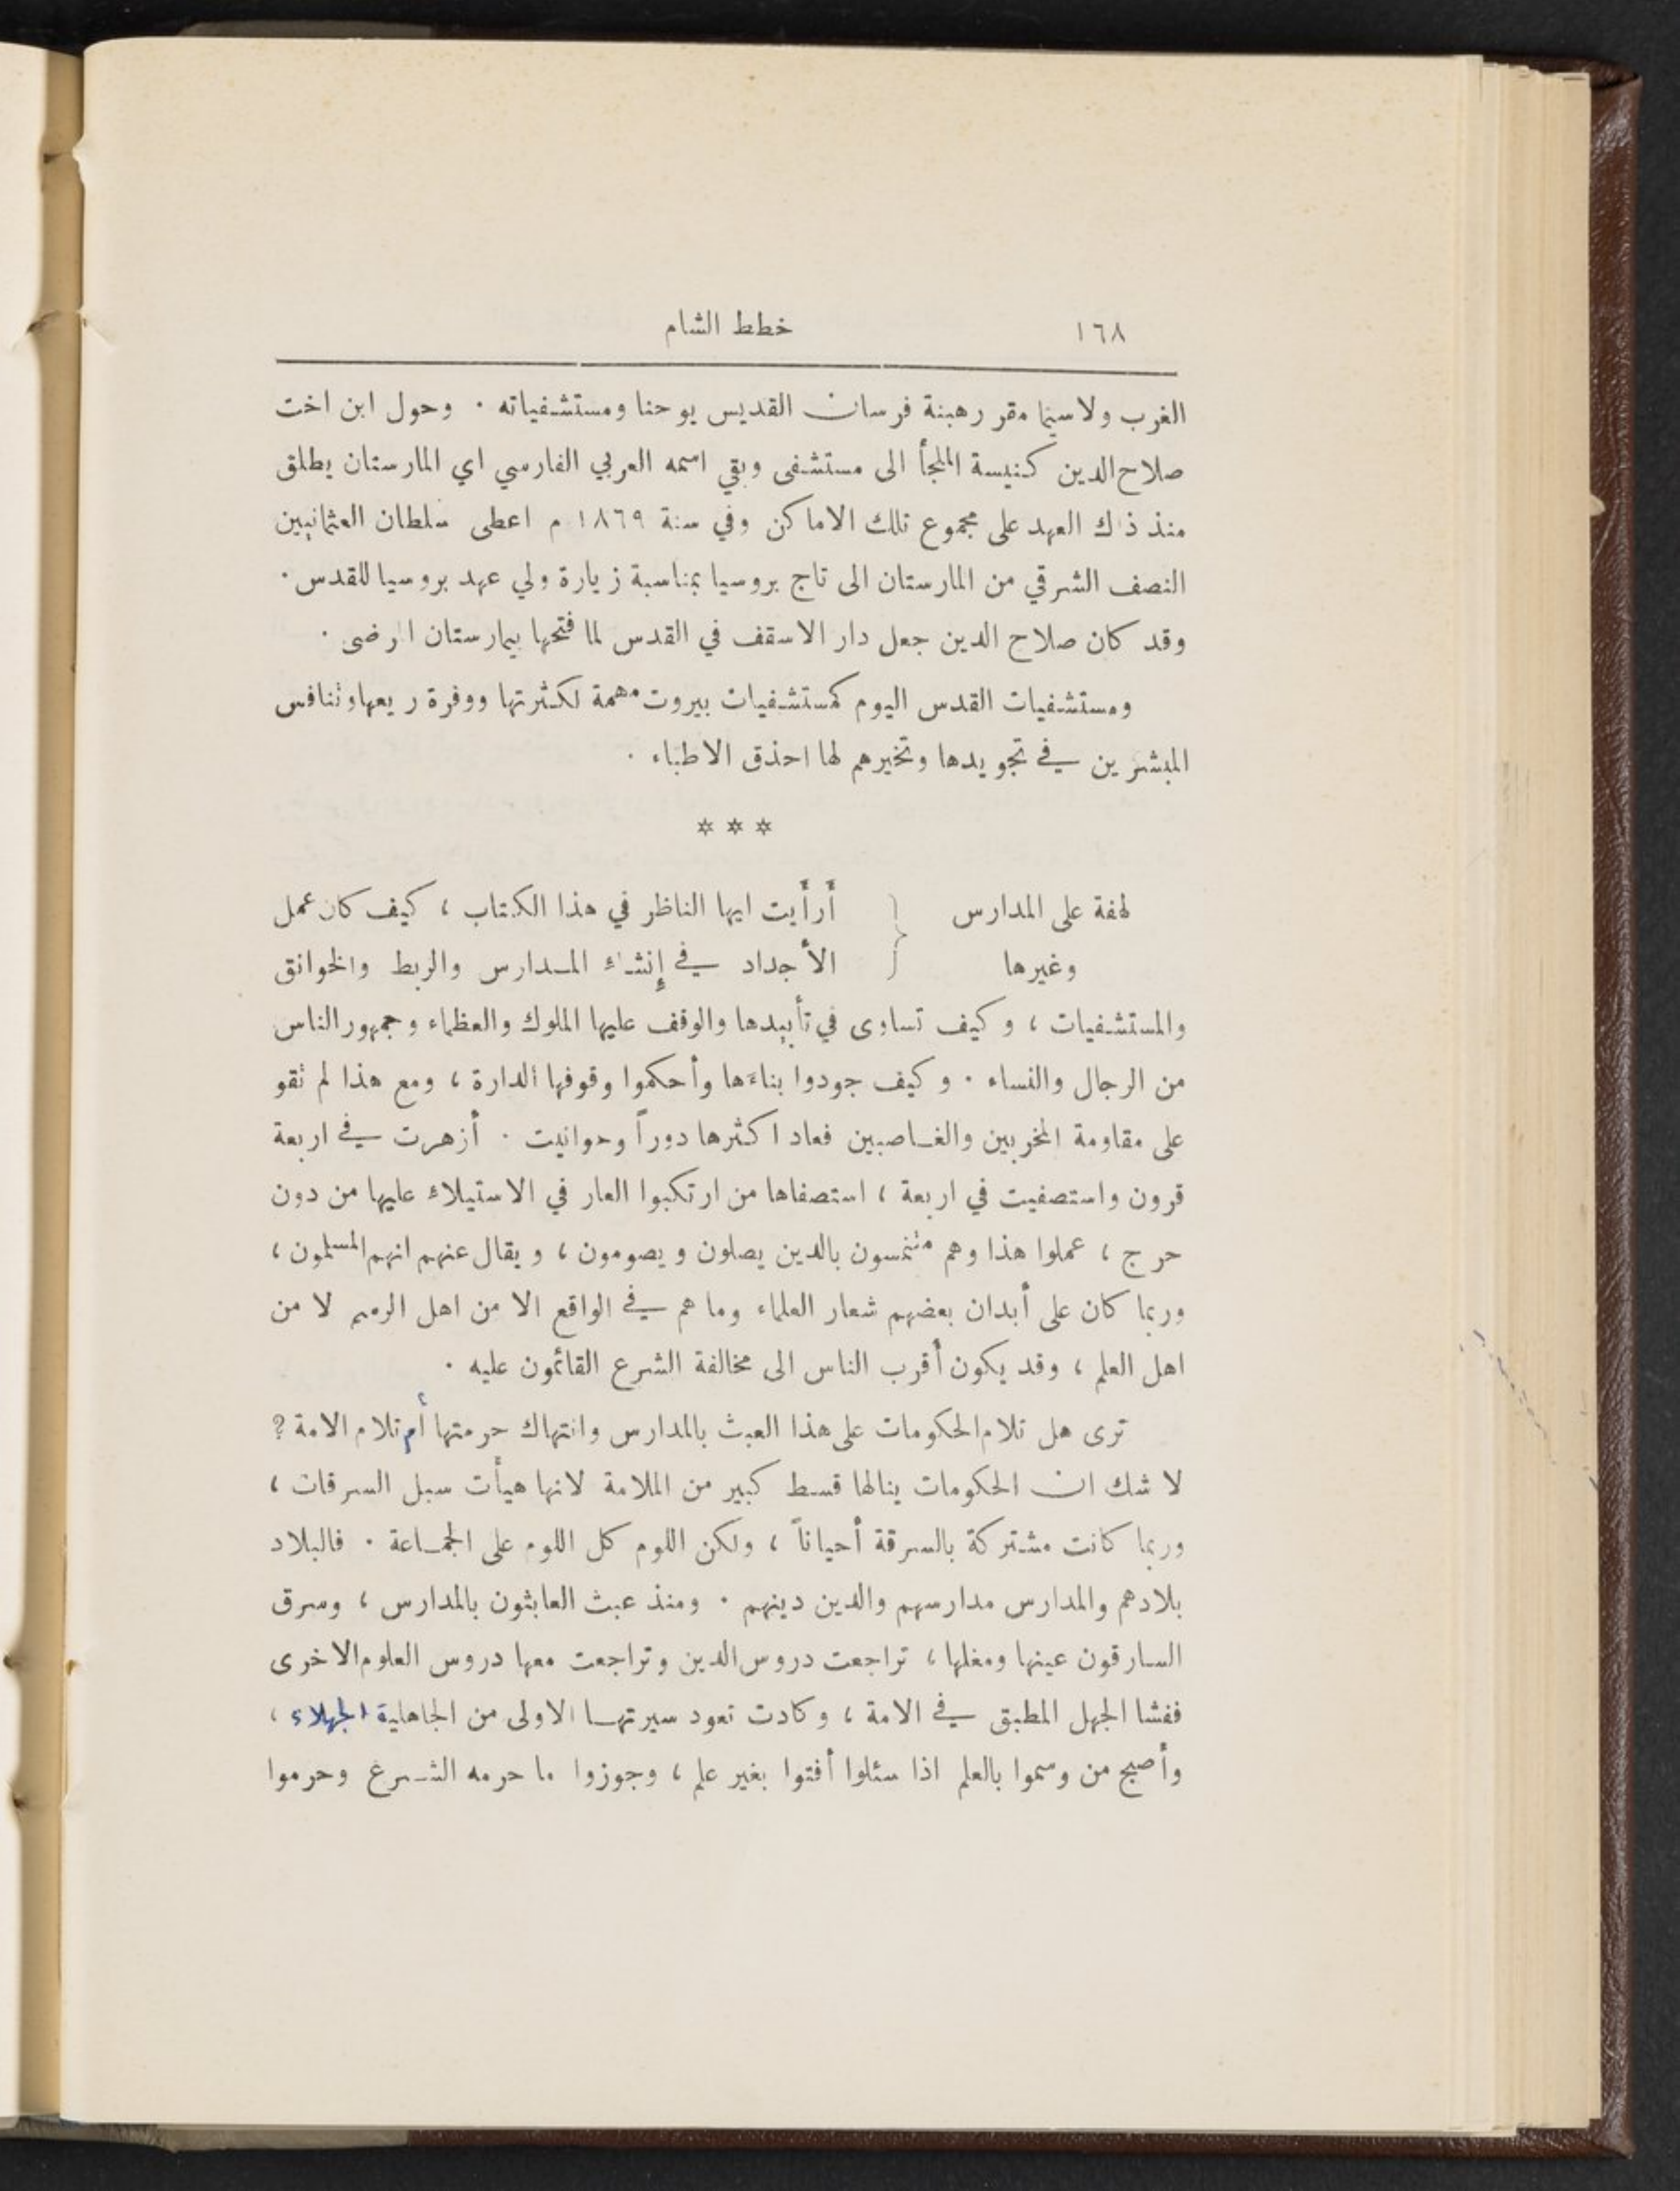 ١٦٨ خطط الشام
الغرب ولا سيما مقر رهبنة فرسان القديس يوحنا ومستشفياته . وحول ابن اخت
صلاح الدين كنيسة الملجأ الى مستشفى وبقي اسمه العربي الفارسي اي المارستان يطلق
منذ ذاك العهد على مجموع تلك الاماكن وفي سنة ١٨٦٩ م اعطى سلطان العثمانيين
النصف الشرقي من المارستان الى تاج بروسيا بمناسبة زيارة ولي عهد بروسيا للقدس .
وقد كان صلاح الدين جعل دار الاسقف في القدس لما فتحها بيمارستان المرضى .
ومستشفيات القدس اليوم كمستشفيات بيروت مهمة لكثرتها ووفرة ريعها وتنافس
المبشرين في تجويدها وتخيرهم لها احذق الاطباء .
* * *
لهفة على المدارس { أرأيت ايها الناظر في هذا الكتاب ، كيف كان عمل
وغيرها الأجداد في إنشاء المدارس والربط والخوانق
والمستشفيات ، وكيف تساوى في تأييدها والوقف عليها الملوك والعظماء وجمهور الناس
من الرجال والنساء . وكيف جودوا بناءها وأحكموا وقوفها الدارة ، ومع هذا لم تقو
على مقاومة المخربين والغاصبين فعاد اكثرها دوراً وحوانيت . أزهرت في اربعة
قرون واستصفيت في اربعة ، استصفاها من ارتكبوا العار في الاستيلاء عليها من دون
حرج ، عملوا هذا وهم متمسون بالدين يصلون ويصومون ، ويقال عنهم انهم المسلمون ،
وربما كان على أبدان بعضهم شعار العلماء وما هم في الواقع الا من اهل الرسم لا من
اهل العلم ، وقد يكون أقرب الناس الى مخالفة الشرع القائمون عليه .
ترى هل تلام الحكومات على هذا العبث بالمدارس وانتهاك حرمتها أم تلام الامة ؟
لا شك ان الحكومات ينالها قسط كبير من الملامة لانها هيأت سبل السرقات ،
وربما كانت مشتركة بالسرقة أحياناً ، ولكن اللوم كل اللوم على الجماعة . فالبلاد
بلادهم والمدارس مدارسهم والدين دينهم . ومنذ عبث العابثون بالمدارس ، وسرق
السارقون عينها ومغلها ، تراجعت دروس الدين وتراجعت معها دروس العلوم الاخرى
ففشا الجهل المطبق في الامة ، وكادت تعود سيرتها الاولى من الجاهلية الجهلاء ،
وأصبح من وسموا بالعلم اذا سئلوا أفتوا بغير علم ، وجوزوا ما حرمه الشرع وحرموا